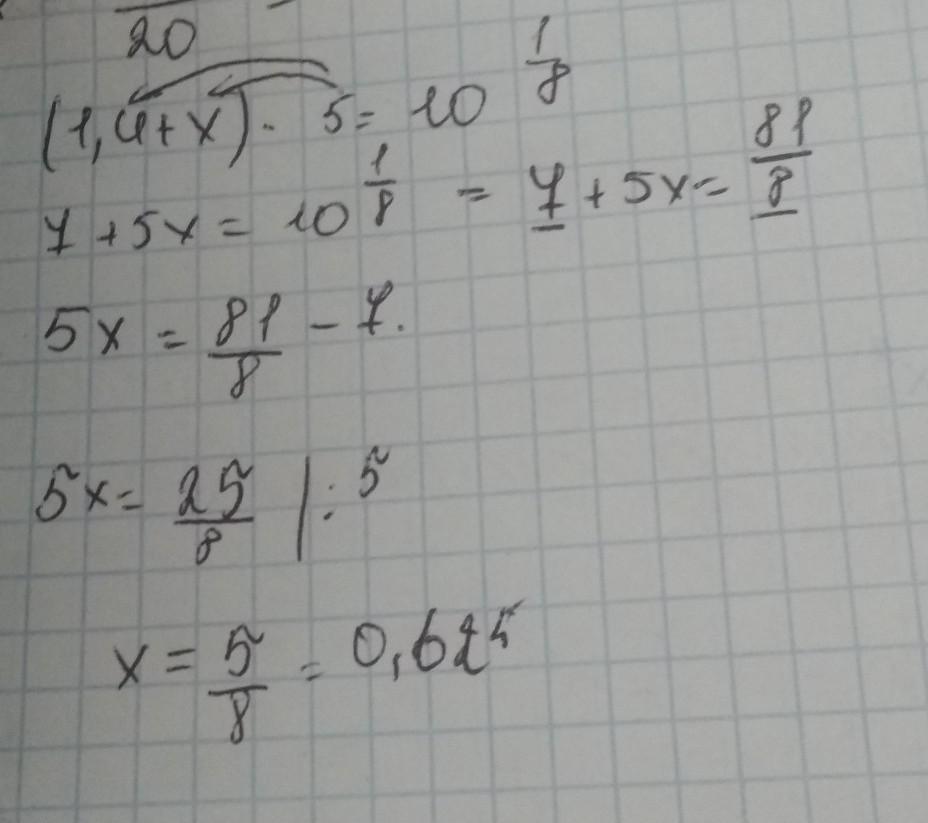 20
(1,4+x)· 5= 10 1/8
7 +5x = 10 1/8 = 7 + 5x = 81/8
5x = 81/8 - 7.
5x = 25/8 | : 5
x = 5/8 = 0,625